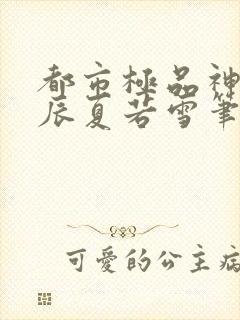 都市極品神
辰夏若雪筆
可愛的公主病